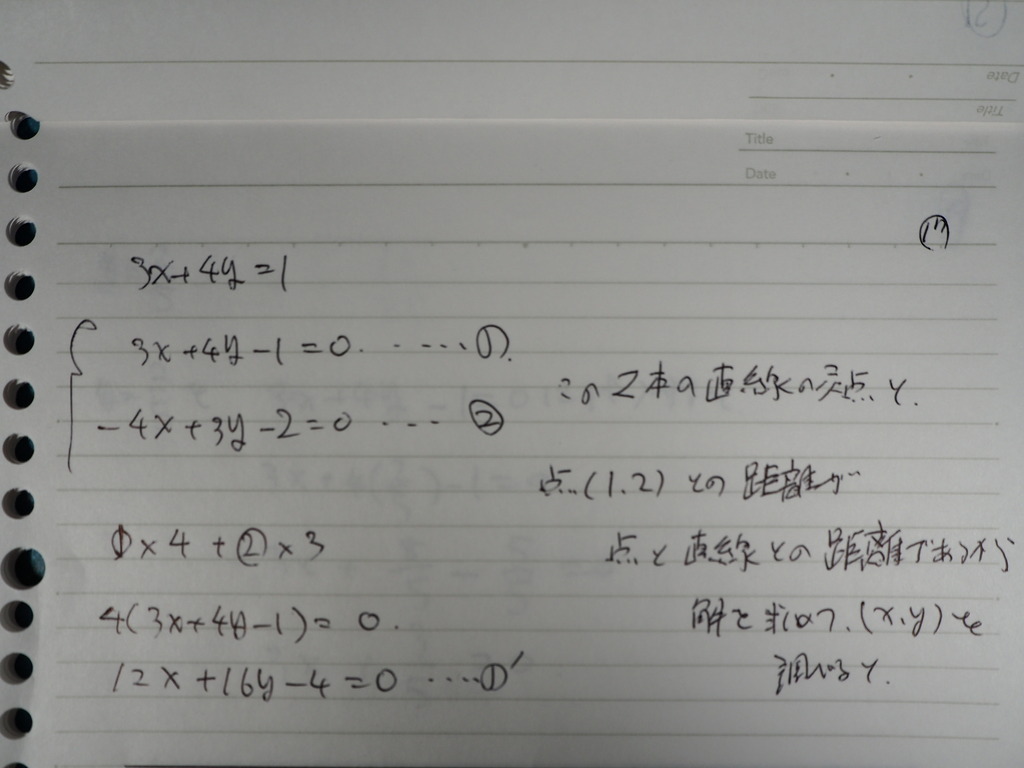 Title
Date
(17)
3x+4y=1
3x+4y-1=0.‥‥‥①.
-4x+3y-2=0‥‥②
この2本の直線の交点と.
点(1.2)との距離が
①×4+②×3
点と直線との距離であるから
4(3x+4y-1)=0.
解を求めて、(x,y)を
12x+16y-4=0‥‥①′
調べると.